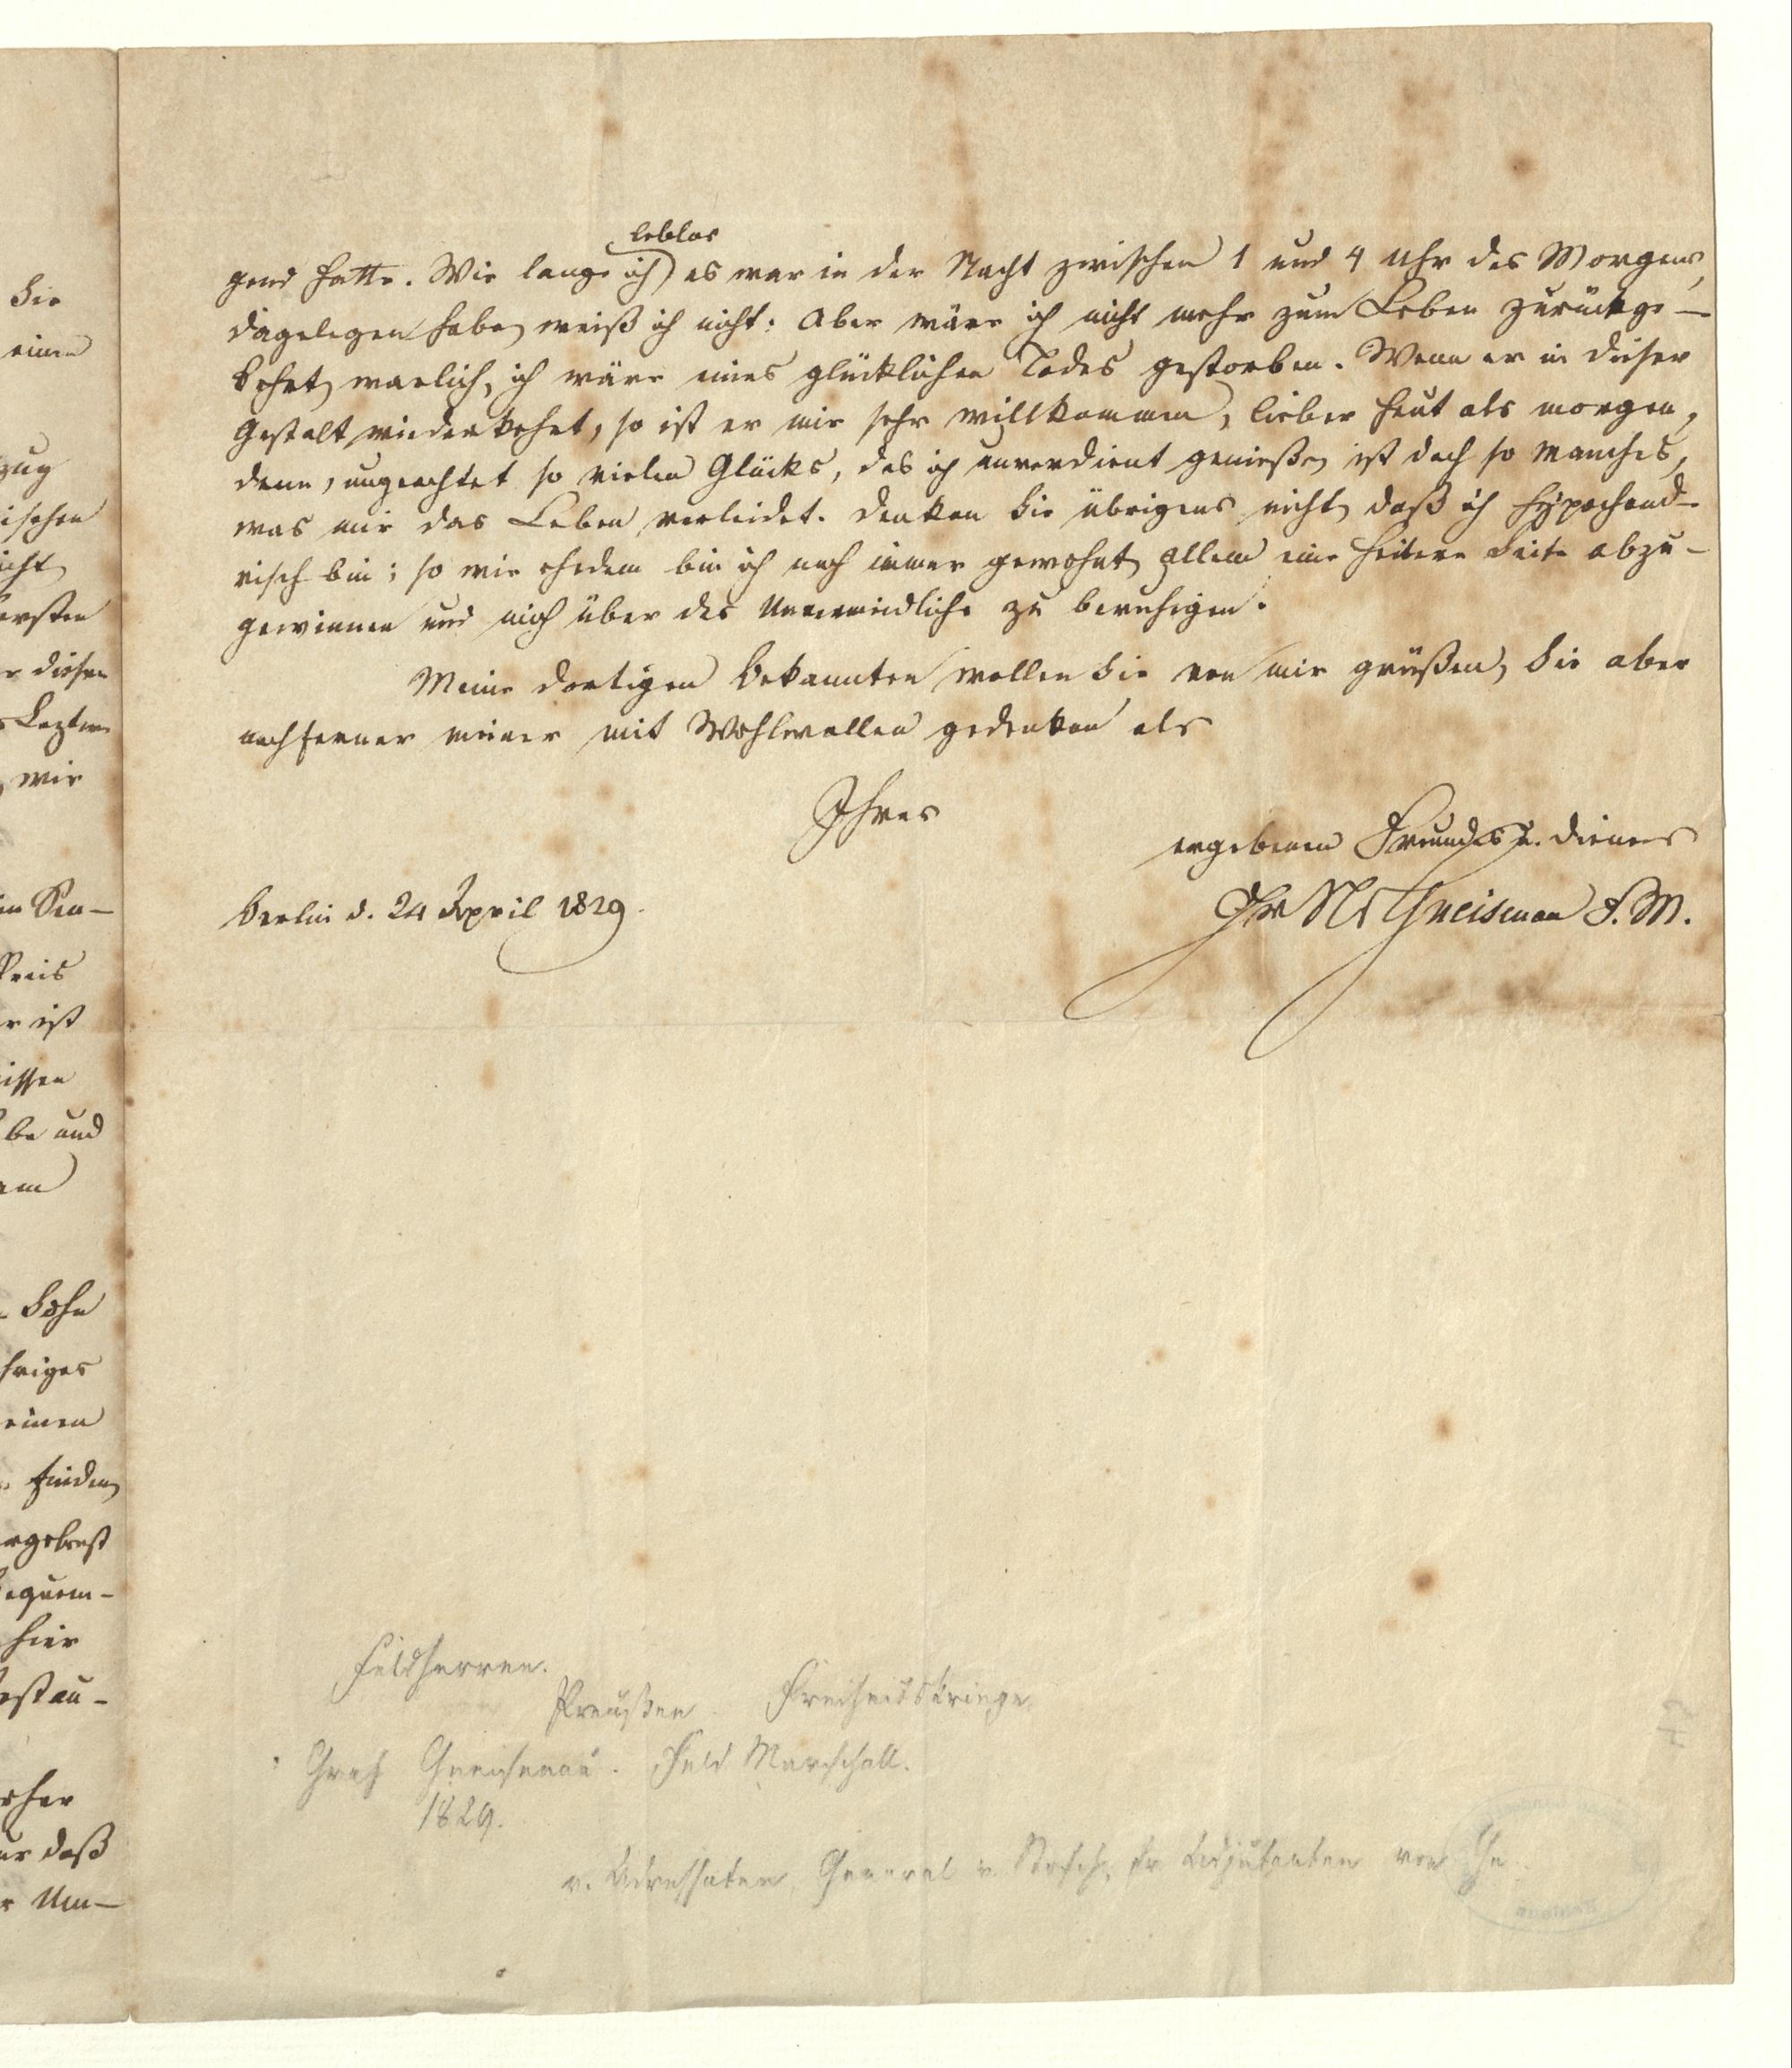 Sie
einen
zug
ischen
icht
ersten
r diesen
Leztern
wir
Preis
r ist
issen
be und
em
Sohn
hriges
einen
finden
bequem-
hier
estau-
ur daß
r Um-
leblos
gend hatte. Wie lange ich, es war in der Nacht zwischen 1 und 4 Uhr des Morgens,
dagelegen habe, weiß ich nicht: Aber wäre ich nicht mehr zum Leben zurückge-
kehrt, warlich, ich wäre eines glücklichen Todes gestorben. Wenn er in dieser
Gestalt wiederkehrt, so ist er mir sehr willkommen, lieber heut als morgen,
denn, ungeachtet so vielen Glücks, das ich unverdient genieße, ist doch so Manches,
was mir das Leben verleidet. Denken Sie übrigens nicht, daß ich hypochond-
risch bin; so wie ehedem bin ich noch immer gewohnt, allem eine heitere Seite abzu-
gewinnen und mich über das Unvermeidliche zu beruhigen.
Meine dortigen Bekannten wollen Sie von mir grüßen, Sie aber
noch ferner meiner mit Wohlwollen gedenken als
Ihres
ergebenen Freundes u. Dieners
Berlin d. 24 April 1829.
Gr N v Gneisenau F. M.
Feldherren.
Preußen. Freiheitskriege
Graf Gneisenau. Feld Marschall.
1829.
v. Adressaten, General v. Stosch, Adjutanten von Gn.